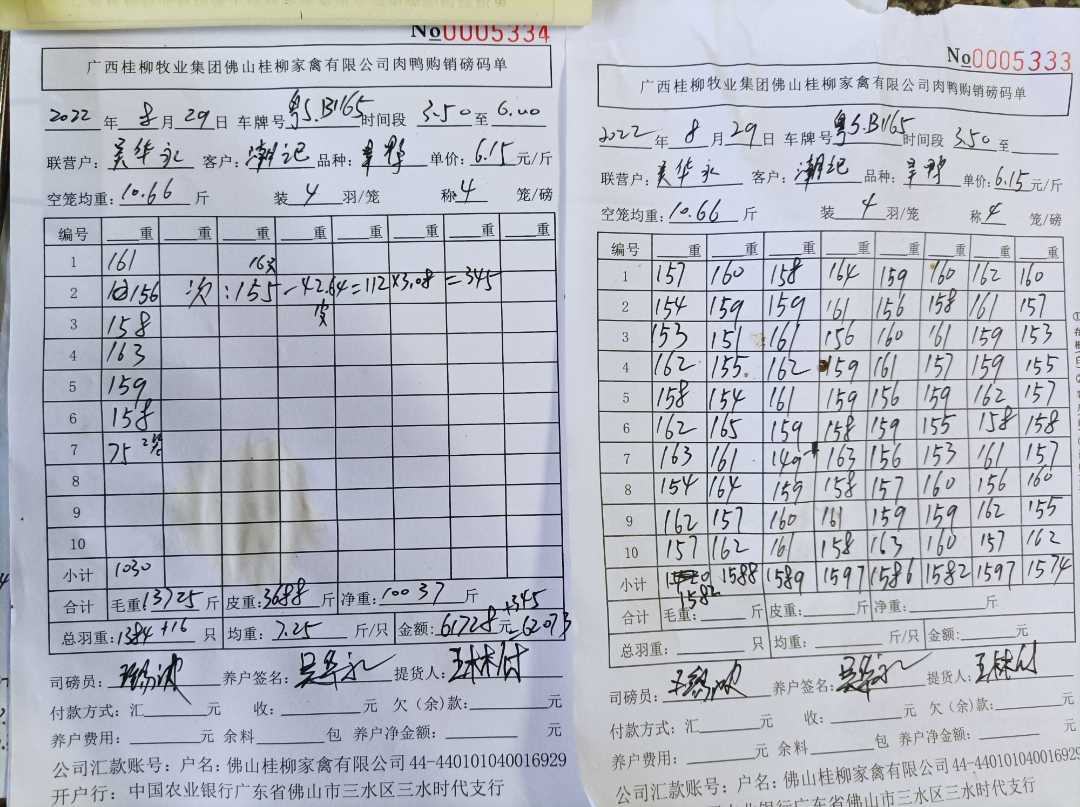 No0005334
广西桂柳牧业集团佛山桂柳家禽有限公司肉鸭购销磅码单
2022年8月29日 车牌号粤S.B1165时间段3.50至6.00
联营户：吴华永 客户：潮记 品种： 单价：6.15元/斤
空笼均重：10.66斤 装4羽/笼 称4笼/磅
编号 重 重 重 重 重 重 重 重
1 161 16只
2 156 次：155-42.64=112×3.08=345
皮
3 158
4 163
5 159
6 158
7 75 2笼
8
9
10
小计 1030
合计 毛重：13725斤 皮重：3688斤 净重：10037斤
总羽重：1384+16只 均重：7.25斤/只 金额：61728元+345=62073
司磅员： 养户签名：吴华永 提货人：王林付
付款方式：汇元 收：元 欠（余）款：元
养户费用：元 余料包 养户净金额：元
公司汇款账号：户名：佛山桂柳家禽有限公司44-440101040016929
开户行：中国农业银行广东省佛山市三水区三水时代支行
No0005333
广西桂柳牧业集团佛山桂柳家禽有限公司肉鸭购销磅码单
2022年8月29日 车牌号粤S.B1165时间段3.50至
联营户：吴华永 客户：潮记 品种： 单价：6.15元/斤
空笼均重：10.66斤 装4羽/笼 称4笼/磅
编号 重 重 重 重 重 重 重 重
1 157 160 158 164 159 160 162 160
2 154 159 159 161 156 158 161 157
3 153 151 161 156 160 161 159 153
4 162 155 162 159 161 157 159 155
5 158 154 161 159 156 159 162 157
6 162 165 159 158 159 155 158 158
7 163 161 149 163 156 153 161 157
8 154 164 159 158 157 160 156 160
9 162 157 160 161 159 159 162 155
10 157 162 161 158 163 160 157 162
小计 1582 1588 1589 1597 1586 1582 1597 1574
合计 毛重：斤 皮重：斤 净重：斤
总羽重：只 均重：斤/只 金额：元
司磅员： 养户签名：吴华永 提货人：王林付
付款方式：汇元 收：元 欠（余）款：元
养户费用：元 余料包 养户净金额：元
公司汇款账号：户名：佛山桂柳家禽有限公司44-440101040016929
银行广东省佛山市三水区三水时代支行